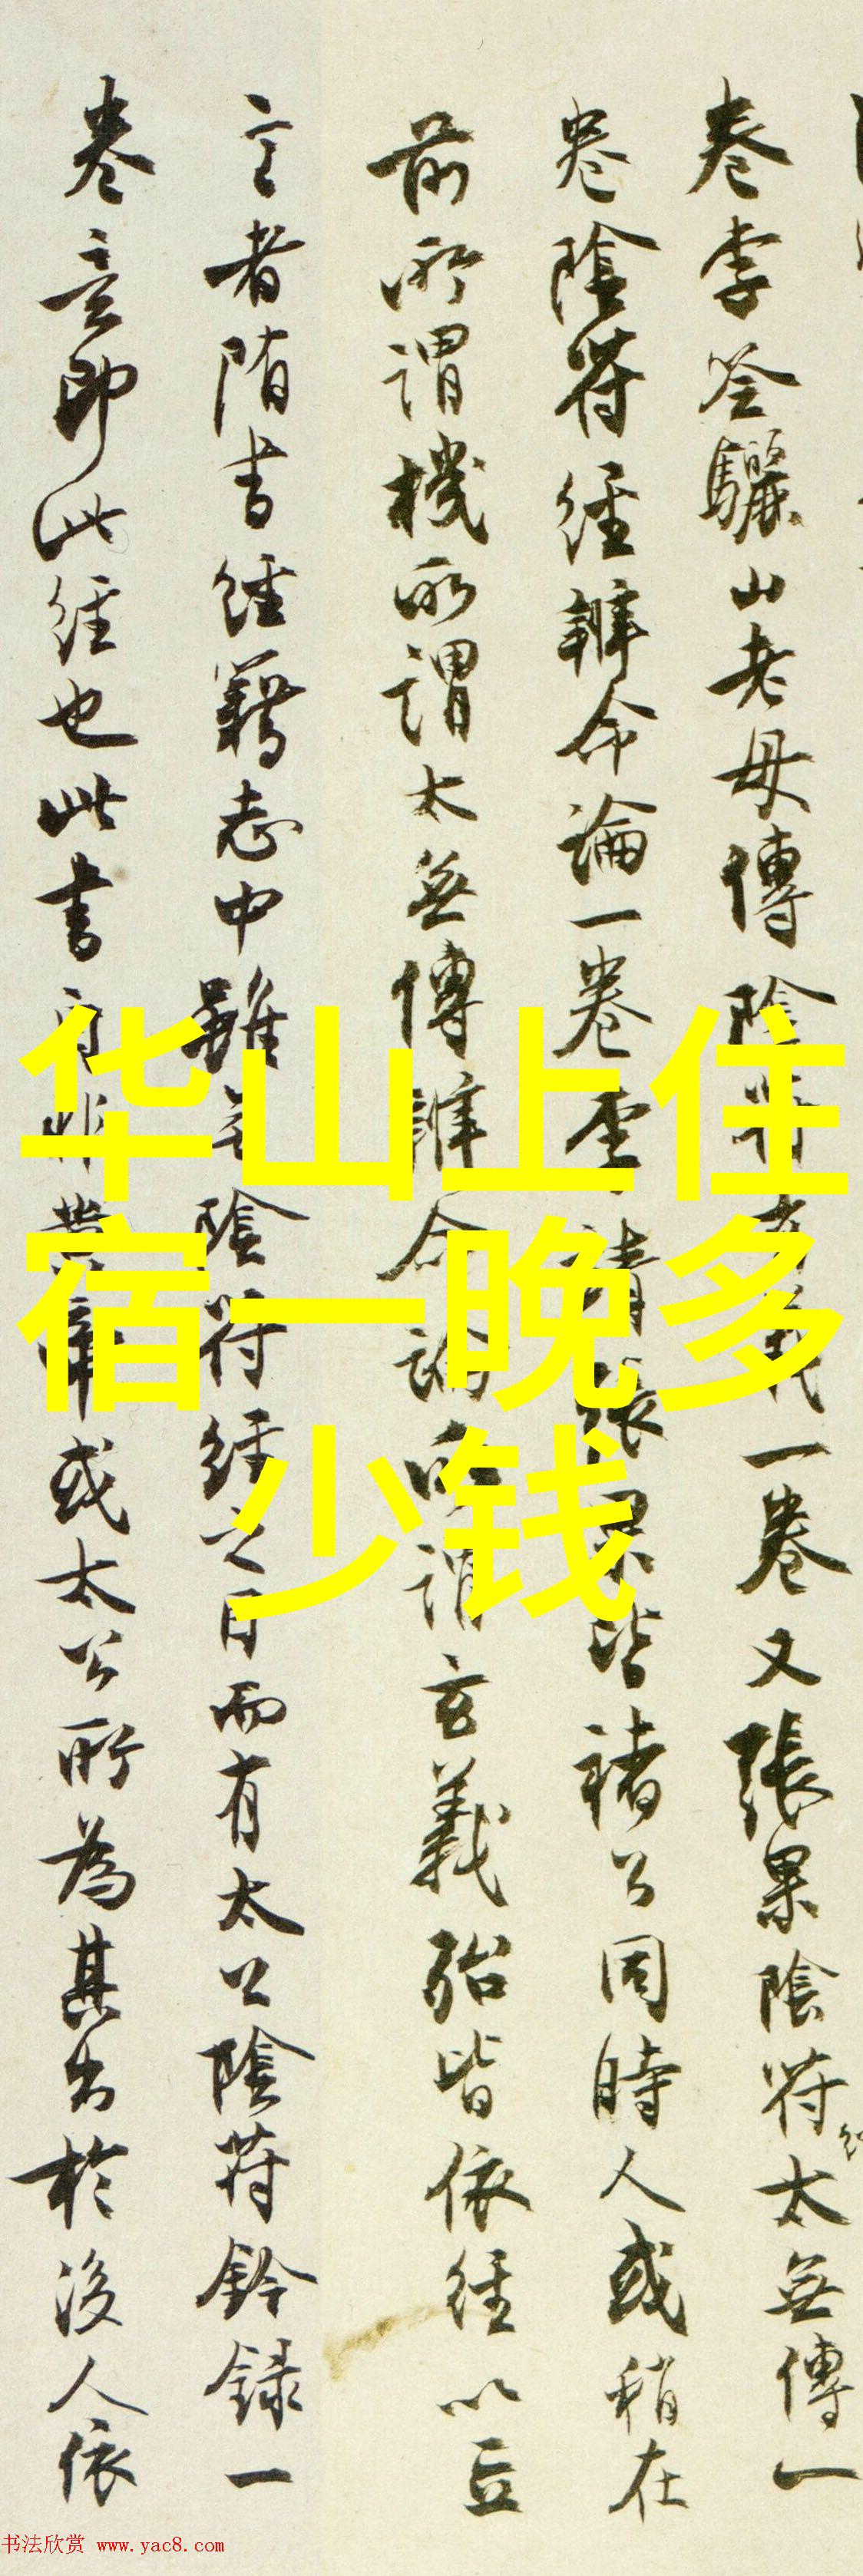 卷李筌驪山老母傳陰符玄義一卷又張果陰符太無傳一
卷陰符經辨命論一卷李靖張果皆褚公同時人或稍在
前所謂機所謂太無傳辨命論所謂玄義殆皆依經以立
言者隋書經籍志中雖無陰符經之目而有太公陰符鈐録一
卷意即此經也此書自非黄帝或太公所為其出於後人依
华山上住
宿一晚多
少钱
书法欣赏 www.yac8.com